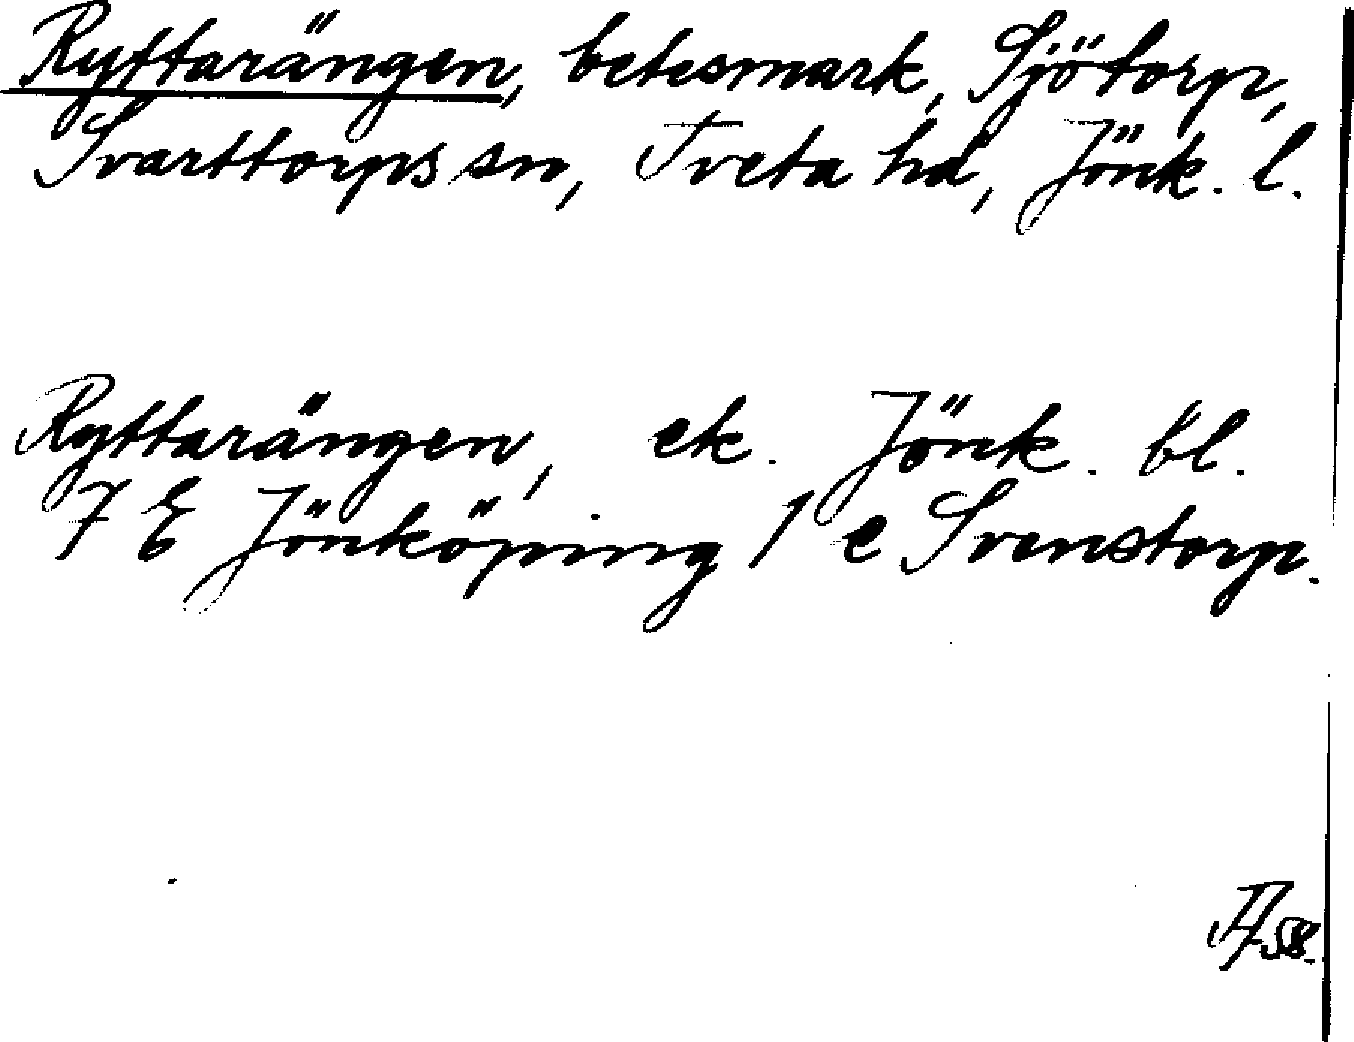 Ryttarängen, betesmark, Sjötorp,
Svarttorps sn, Tveta hd, Jönk. l.
Ryttarängen, ek. Jönk. bl.
7 E Jönköping 1 e Svenstorp.
58.